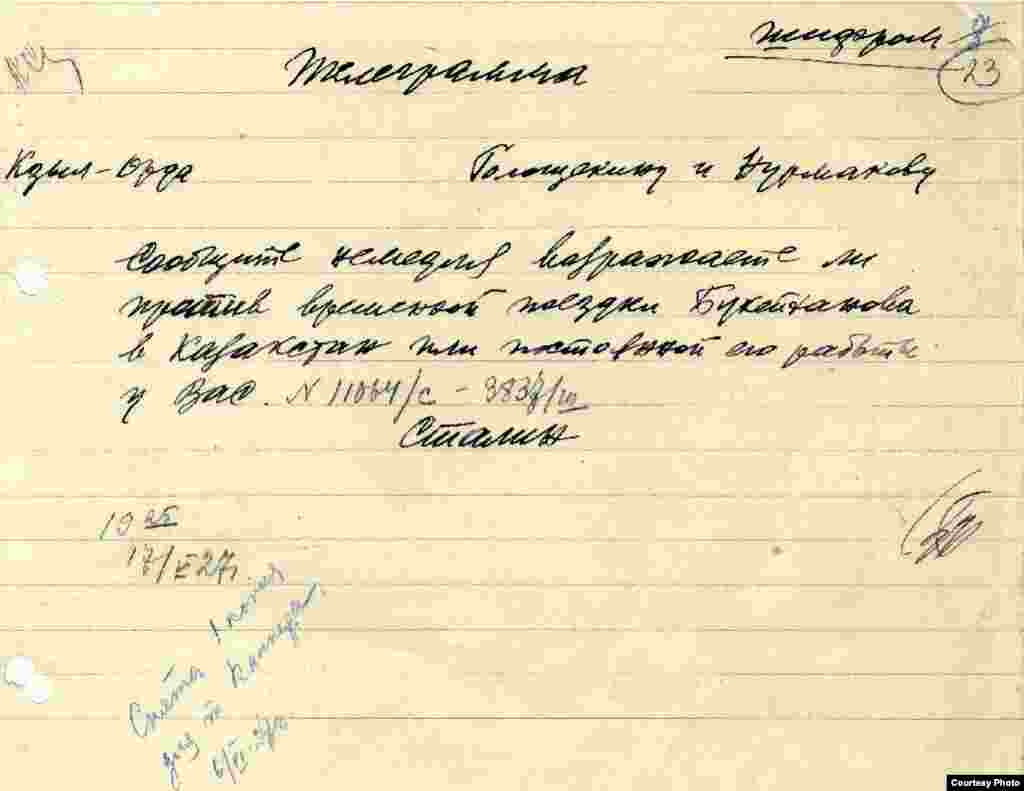 шифром
23
Телеграмма
Кзыл-Орда Голощекину и Нурмакову
Сообщите немедля возражаете ли
против временной поездки Букейханова
в Казакстан или постоянной его работы
у Вас. N 11064/с -
Сталин
19 25
17/V 27г
Снята 1 копия
для т.
6/VI-27г
Courtesy Photo